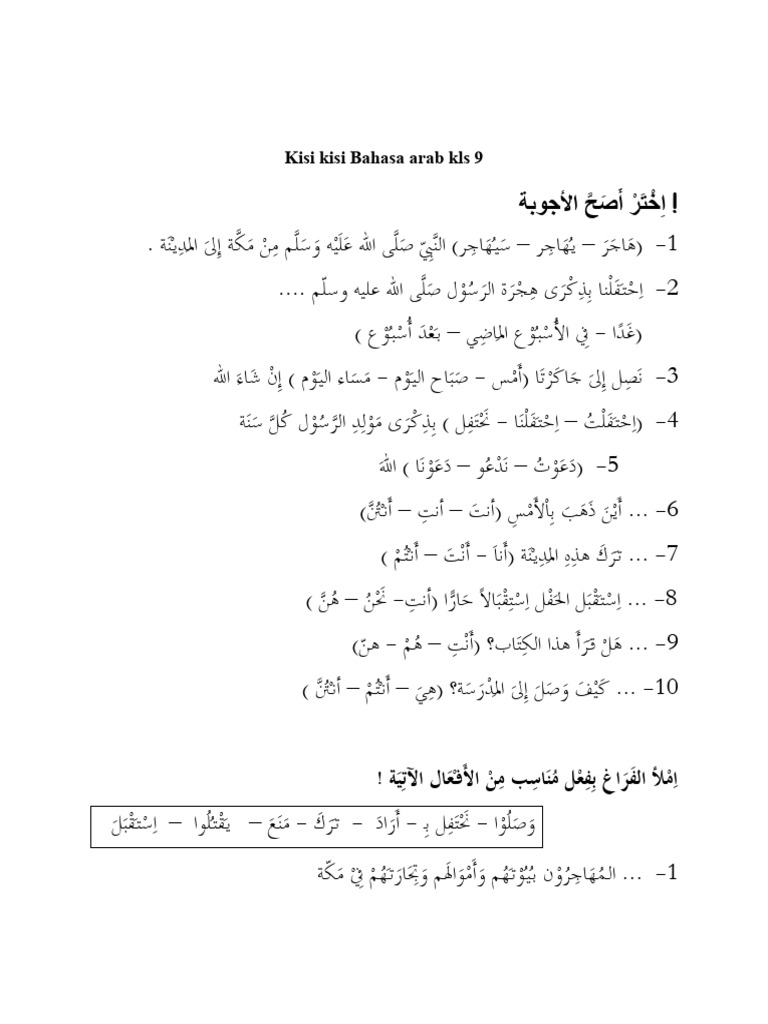 Kisi kisi Bahasa arab kls 9
اِخْتَرْ أَصَحَّ الأجوبة !
1- (هَاجَرَ – يُهَاجِر – سَيُهَاجِر) النَّبِيّ صَلَّى الله عَلَيْه وَسَلَّم مِنْ مَكَّة إِلىَ المَدِيْنَة .
2- اِحْتَفَلْنا بِذِكْرَى هِجْرَة الرَسُوْل صَلَّى الله عليه وسلّم ....
(غَدًا – فِي الأُسْبُوْع المَاضِي – بَعْدَ أُسْبُوْع )
3- نَصِل إِلىَ جَاكَرْتَا (أَمْس – صَبَاح اليَوْم – مَسَاء اليَوْم ) إِنْ شَاءَ الله
4- (اِحْتَفَلْتُ – اِحْتَفَلْنَا – نَحْتَفِل ) بِذِكْرَى مَوْلِدِ الرَّسُوْل كُلَّ سَنَة
5- (دَعَوْتُ – نَدْعُو – دَعَوْنَا ) اللهَ
6- ... أَيْنَ ذَهَبَ بِالْأَمْسِ (أنتَ – أنتِ – أَنْتُنَّ)
7- ... تَرَكَ هذِهِ المَدِيْنَة (أَناَ – أَنْتَ – أَنْتُمْ )
8- ... اِسْتَقْبَل الحَفْل اِسْتِقْبَالاً حَارًّا (أنتِ– نَحْنُ – هُنَّ )
9- ... هَلْ قَرَأَ هذا الكِتَاب؟ (أَنْتِ – هُمْ – هنّ)
10- ... كَيْفَ وَصَلَ إِلىَ المَدْرَسَة؟ (هِيَ – أَنْتُمْ – أنْتُنَّ )
اِمْلأ الفَرَاغ بِفِعْل مُنَاسِب مِنْ الأَفْعَال الآتِيَة !
وَصَلُوْا – نَحْتَفِل بِـ – أَرَادَ – تَرَكَ – مَنَعَ – يَقْتُلُوا – اِسْتَقْبَلَ
1- ... المُهَاجِرُوْن بُيُوْتَهُم وَأَمْوَالَهم وَتِجَارَتَهُمْ فِيْ مَكّة